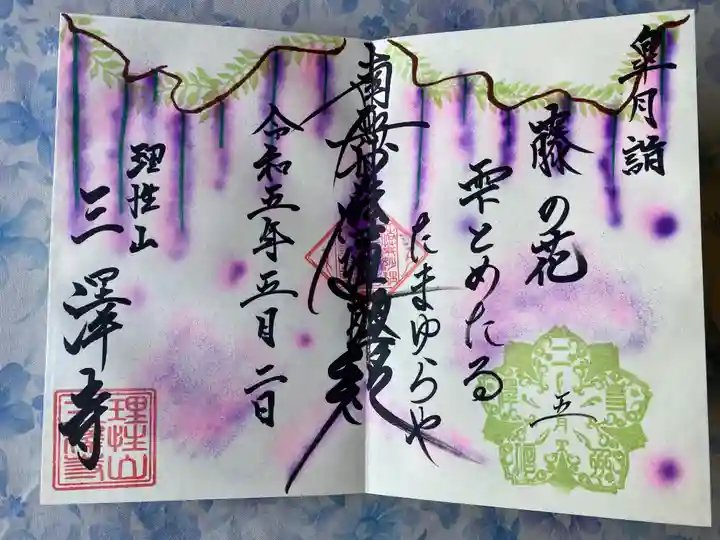 皐月詣
藤の花
雫とめたる
たまゆらや
南無妙法蓮華経
令和五年五月二日
理性山
三澤寺
五月
理性山
三澤寺